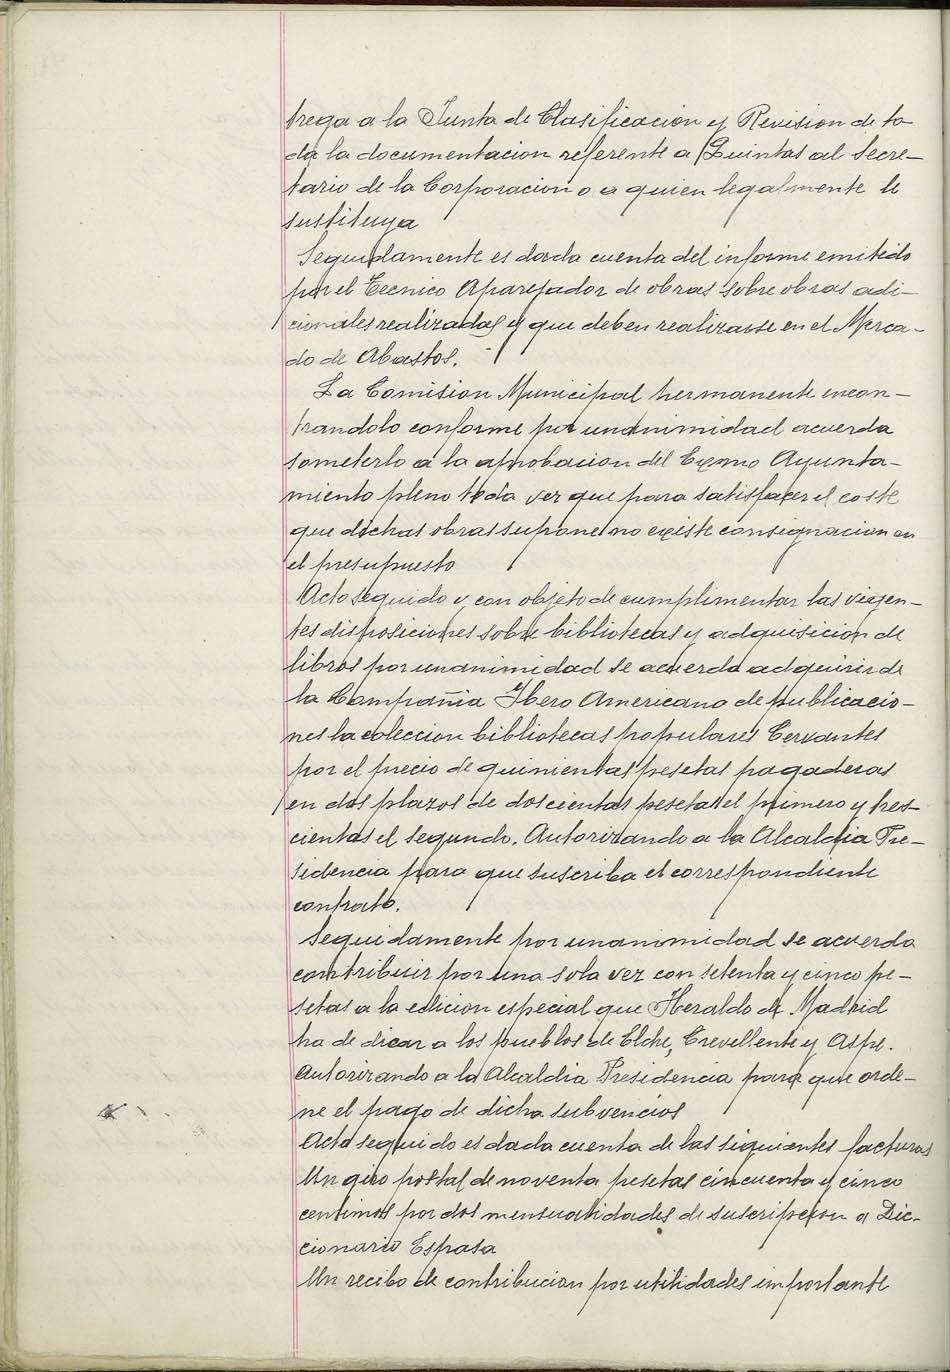 trega a la Junta de Clasificacion y Revision de to
da la documentacion referente a Quintas al Secre-
tario de la Corporacion o a quien legalmente le
sustituya
Seguidamente es dada cuenta del informe emitido
por el Tecnico Aparejador de obras sobre obras adi-
cionales realizadas y que deben realizarse en el Merca-
do de Abastos.
La Comision Municipal Permanente encon-
trandolo conforme por unanimidad acuerda
someterlo a la aprobacion del Excmo Ayunta-
miento pleno toda vez que para satisfacer el coste
que dichas obras supone no existe consignacion en
el presupuesto
Acto seguido y con objeto de cumplimentar las vigen-
tes disposiciones sobre bibliotecas y adquisicion de
libros por unanimidad se acuerda adquirir de
la Compañia Ibero Americana de publicacio-
nes la coleccion bibliotecas populares Cervantes
por el precio de quinientas pesetas pagaderas
en dos plazos de doscientas pesetas el primero y tres-
cientas el segundo. Autorizando a la Alcaldia Pre-
sidencia para que suscriba el correspondiente
contrato.
Seguidamente por unanimidad se acuerda
contribuir por una sola vez con setenta y cinco pe-
setas a la edicion especial que Heraldo de Madrid
ha de dicar a los pueblos de Elche, Crevillente y Aspe.
Autorizando a la Alcaldia Presidencia para que orde-
ne el pago de dicha subvencion
Acto seguido es dada cuenta de las siguientes facturas
Un giro postal de noventa pesetas cincuenta y cinco
centimos por dos mensualidades de suscripcion a Dic-
cionario Espasa
Un recibo de contribucion por utilidades importante